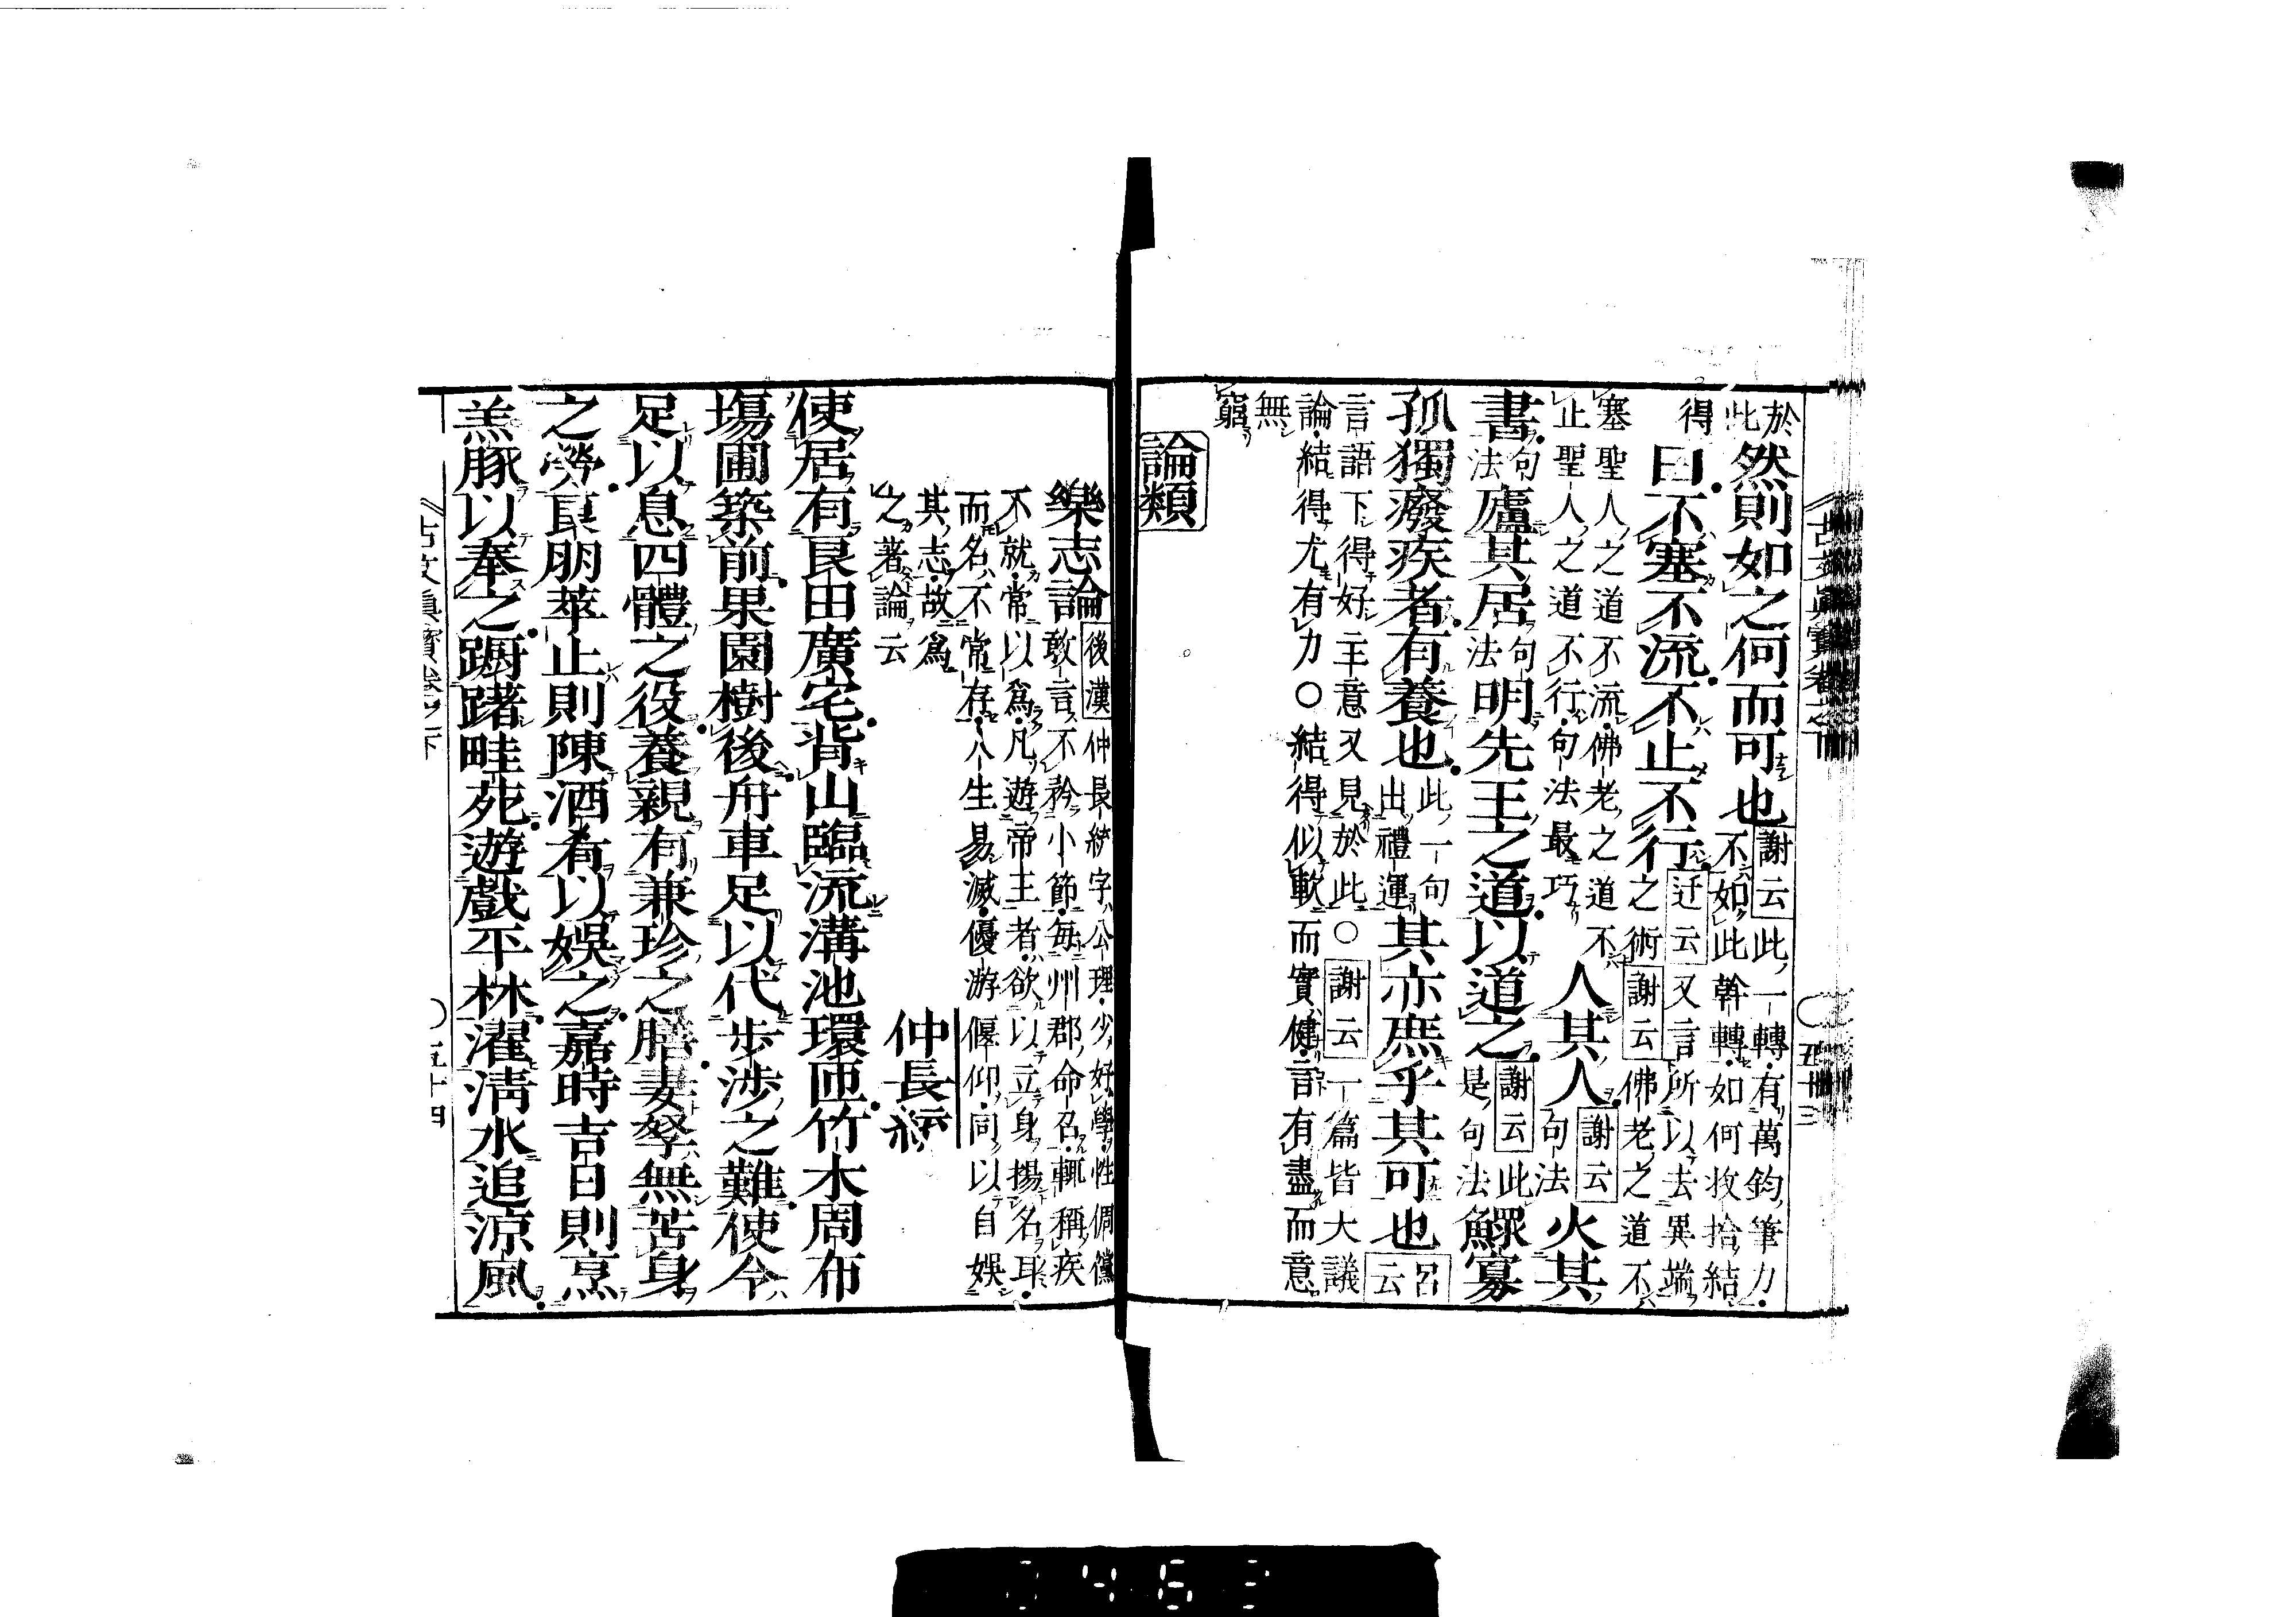 於此然則如之何而可也謝云此一轉有萬鈞筆力不如此幹轉如何收拾結
得曰不塞不流不止不行迂云又言所以去異端之術謝云佛老之道不
塞聖人之道不流佛老之道不止聖人之道不行句法最巧人其人謝云句法火其
書句法廬其居句法明先王之道以道之謝云此是句法鰥寡
孤獨癈疾者有養也此一句出禮運其亦庶乎其可也呂云
言語下得好主意又見於此○謝云一篇皆大議
論結得尤有力○結得似軟而實健言有盡而意
無窮
論類
樂志論後漢仲長統字公理少好學性倜儻敢言不矜小節每州郡命召輒稱疾
不就常以爲凡遊帝王者欲以立身揚名耳
而名不常存人生易滅優游偃仰同以自娛
其志故爲之著論云
仲長統
使居有良田廣宅背山臨流溝池環匝竹木周布
場圃築前果園樹後舟車足以代步涉之難使令
足以息四體之役養親有兼珍之膳妻孥無苦身
之勞良朋萃止則陳酒肴以娛之嘉時吉日則烹
羔豚以奉之躕躇畦苑遊戲平林濯淸水追涼風
古文眞寶卷之下
五十四